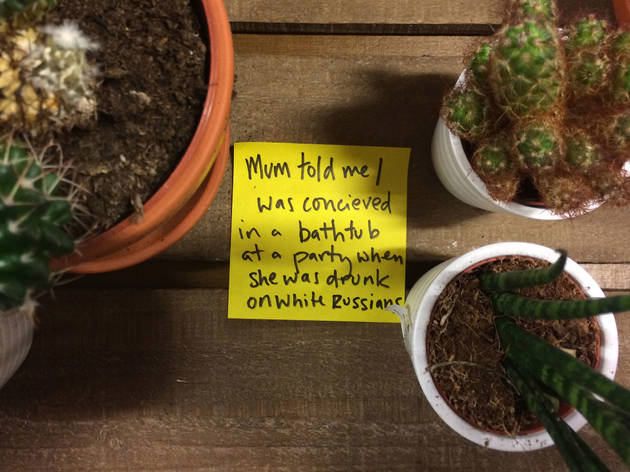 Mum told me I
was concieved
in a bathtub
at a party when
she was drunk
on White Russians